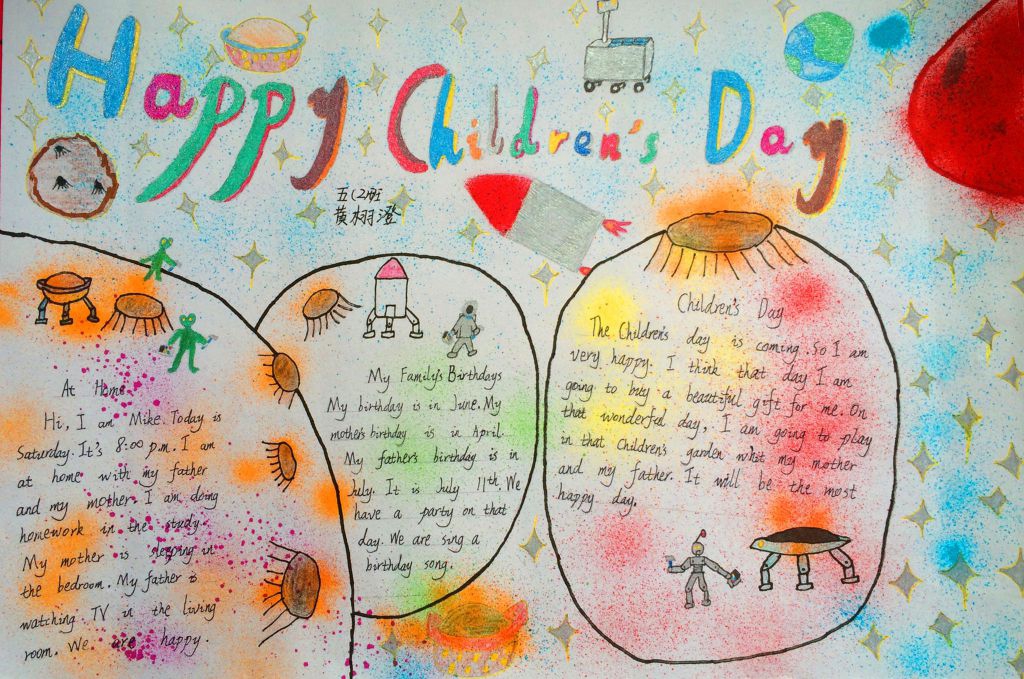 Happy Children's Day
五(2)班
黄栩澄
At Home
Hi, I am Mike. Today is
Saturday. It's 8:00 p.m. I am
at home with my father
and my mother. I am doing
homework in the study.
My mother is sleeping in
the bedroom. My father is
watching TV in the living
room. We are happy.
My Family's Birthdays
My birthday is in June. My
mother's birthday is in April.
My father's birthday is in
July. It is July 11th. We
have a party on that
day. We are sing a
birthday song.
Children's Day
The Children's day is coming. So I am
very happy. I think that day I am
going to buy a beautiful gift for me. On
that wonderful day, I am going to play
in that Children's garden whit my mother
and my father. It will be the most
happy day.